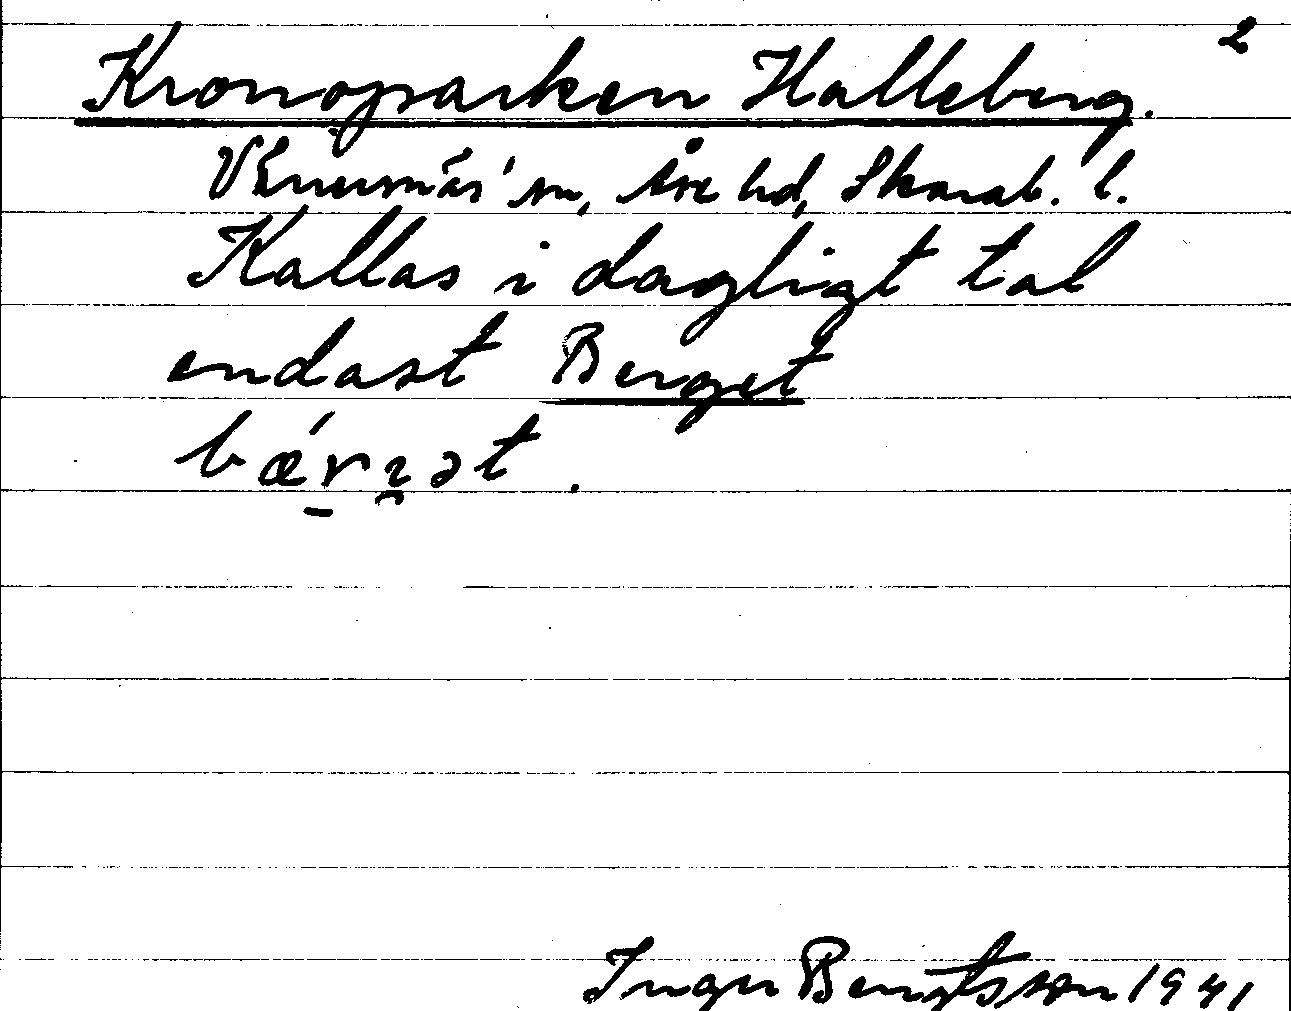 2
Kronoparken Halleberg.
Vänersnäs' sn, Åse hd, Skarab. l.
Kallas i dagligt tal
endast Berget
Inger Bengtsson 1941